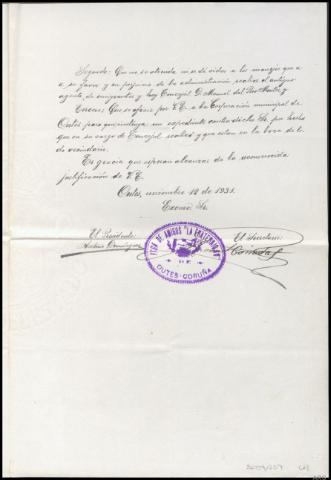 Segundo: Que no se atienda ni se dé oidos a los manejos que a
a su favor y en perjuicio de la administración realiza el antiguo
agente de emigrantes y hoy Concejal D. Manuel del Rio
Tercero: Que se oficie por V.E. a la Corporación municipal de
Outes para que instruya un expediente contra dicho Sr. por hechos
que en su cargo de Concejal realizó y que estan en la boca de to-
do vecindario.
Es gracia que esperan alcanzar de la reconocida
justificación de V.E.
Outes, noviembre 12 de 1931.
Excmo Sr.
El Presidente
El Secretario
FEDN DE AMIGOS "LA FRATERNIDAD"
DE
OUTES-CORUÑA